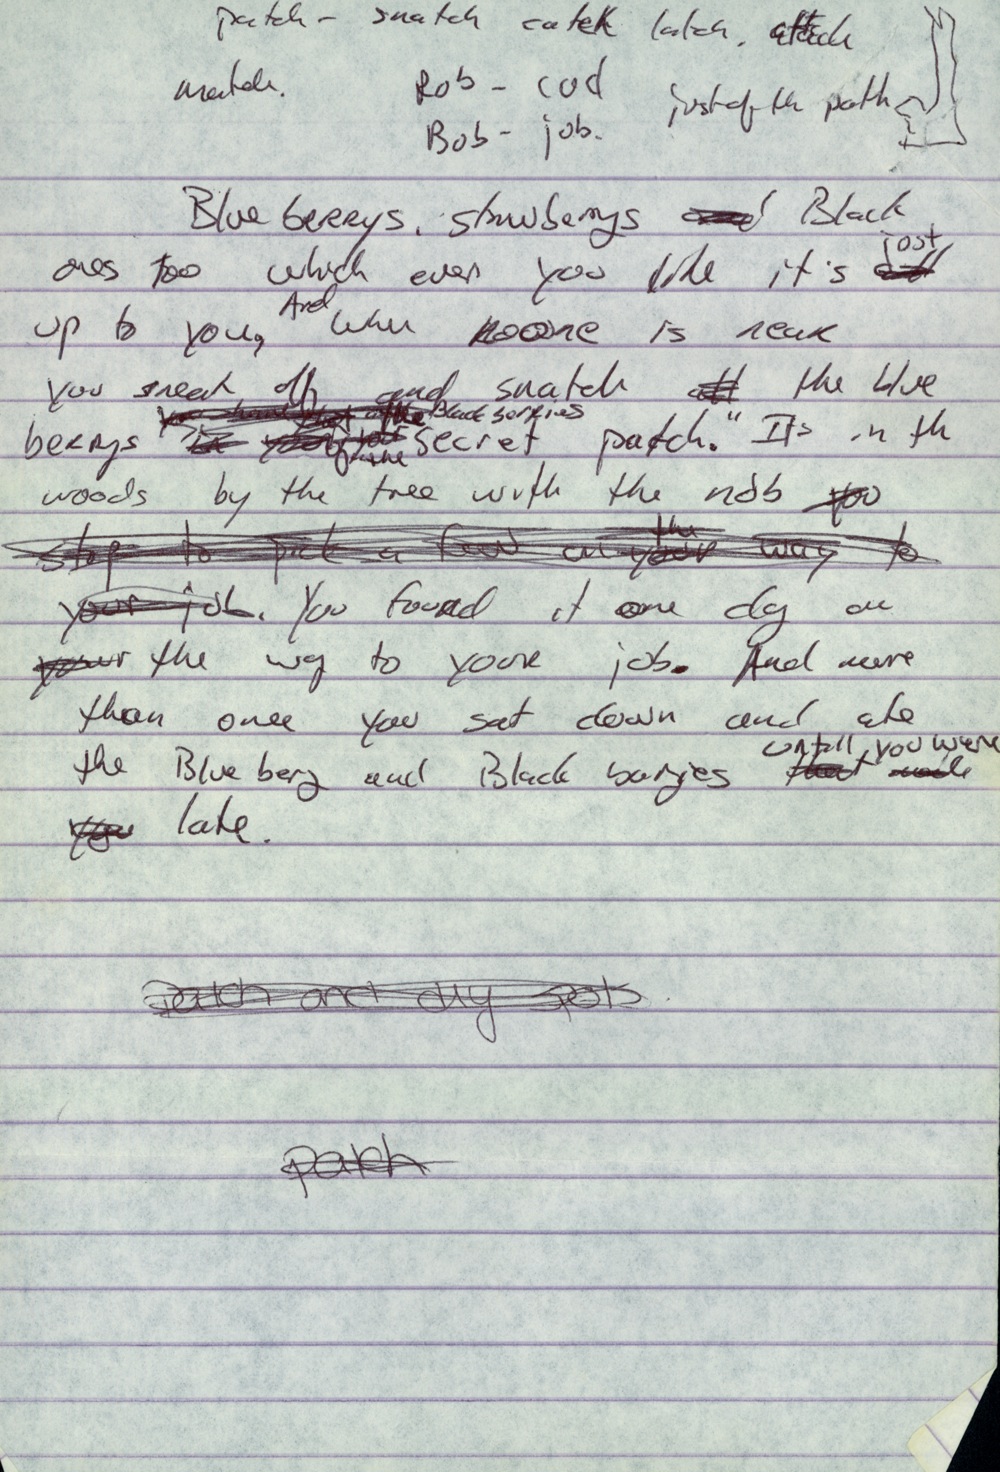 patch - snatch catch latch, attach
match. Rob - cod just of th path
Bob - job.
Blue berrys, strawberrys and Black
ones too which ever you like it's just
up to you, And when noone is near
you sneak off and snatch the blue
berrys Black berries secret patch." It's in th
woods by the tree with the nob you
stop to pick a few on your the way to
your job. You found it one day on
your the way to your job. And more
than once you sat down and ate
the Blue berry and Black berries untill you were
you late.
Patch and dry spots.
patch